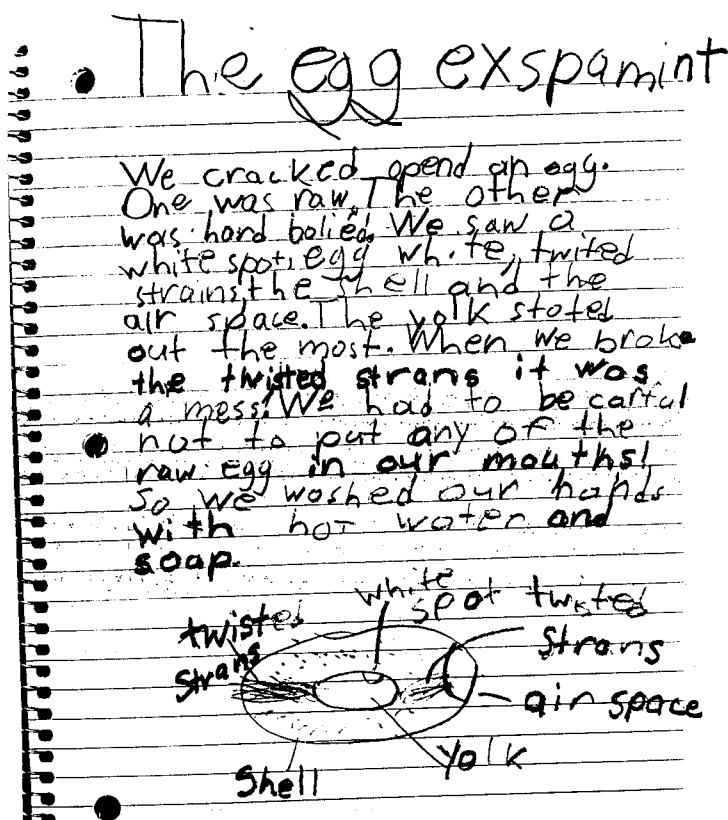 The egg exspamint
We cracked opend an egg.
One was raw. The other
was hard bolied. We saw a
white spot, egg white, twited
strains, the shell and the
air space. The yolk stoted
out the most. When we broke
the twisted strans it was
a mess! We had to be carful
not to put any of the
raw egg in our mouths!
So we woshed our hands
with hot water and
soap.
white
spot
twisted
strans
twisted
strans
air space
yolk
Shell